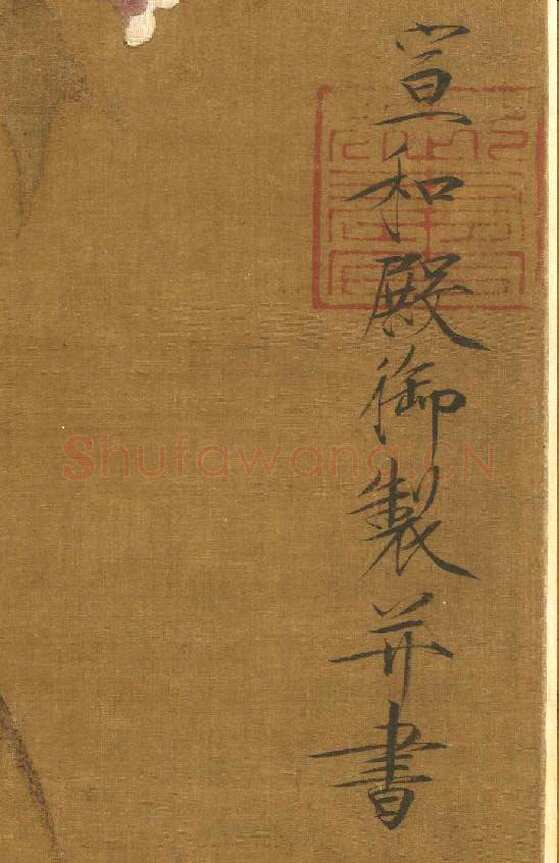 宣和殿御製并書
Shufawang.CN